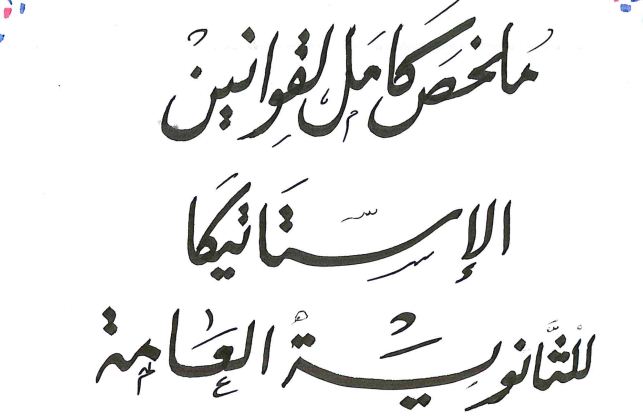 ملخص كامل لقوانين
الإستاتيكا
للثانوية العامة